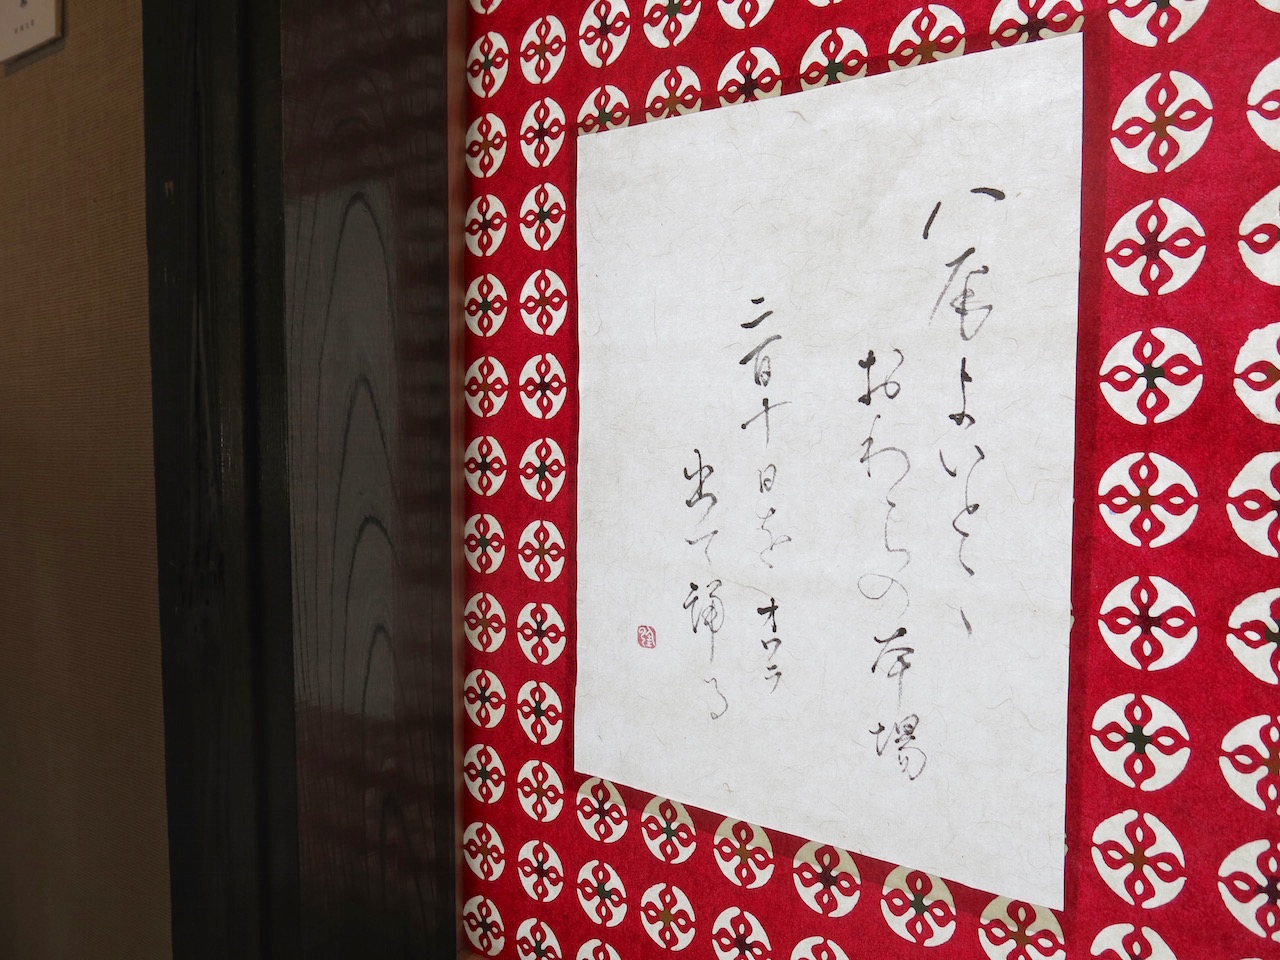 八尾よいとこ
おわらの本場
二百十日を オワラ
出て踊る